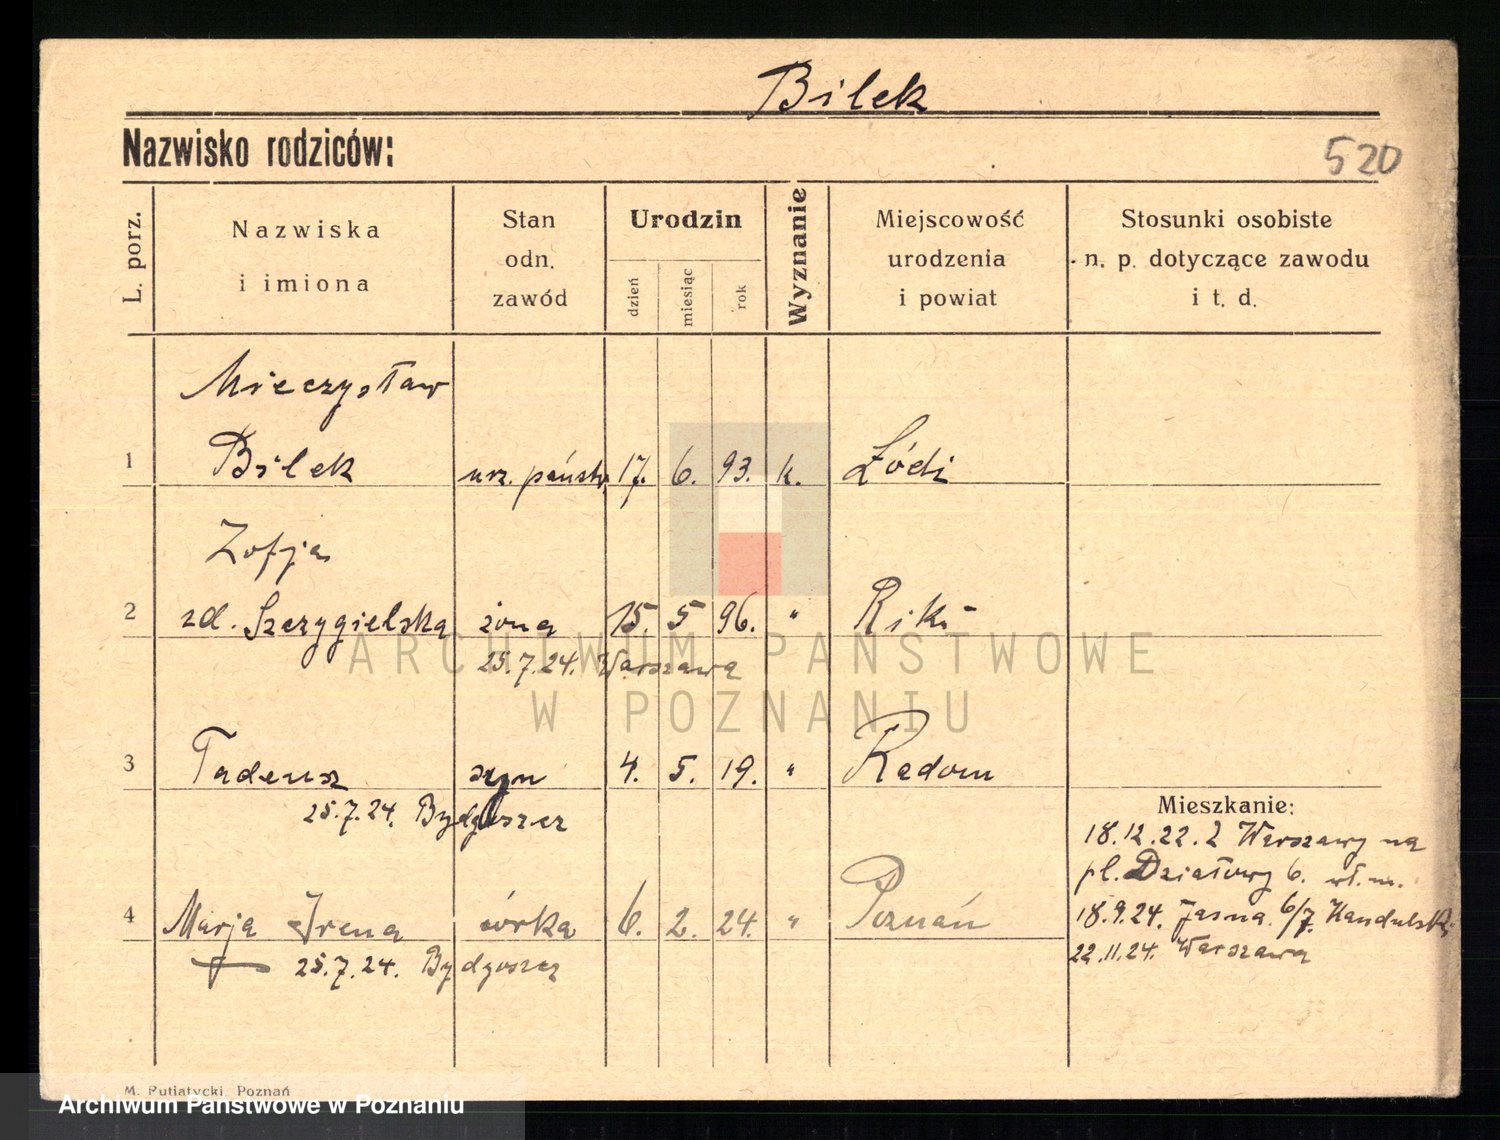 Bilek
Nazwisko rodziców:
520
L. porz.
Nazwiska
i imiona
Stan
odn.
zawód
Urodzin
dzień
miesiąc
rok
Wyznanie
Miejscowość
urodzenia
i powiat
Stosunki osobiste
n. p. dotyczące zawodu
i t. d.
Mieczysław
1 Bilek urz. państw. 17. 6. 93. k. Łódź
Zofja
2 zd. Szczygielska żona 15. 5 96. "
25.7.24. Warszawa
3 Tadeusz syn 4. 5. 19. " Radom
25.7.24. Bydgoszcz
4 Marja Irena córka 6. 2. 24. " Poznań
25.7.24. Bydgoszcz
Mieszkanie:
18.12.22. z Warszawy na
pl. Działowy 6. wł. m.
18.9.24. Jasna. 6/7.
22.11.24. Warszawa
M. Putiatycki, Poznań
ARCHIWUM PAŃSTWOWE
W POZNANIU
Archiwum Państwowe w Poznaniu